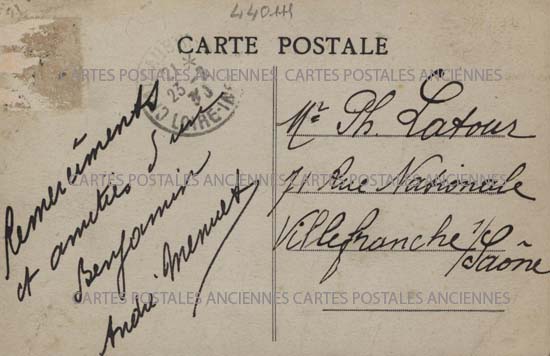 44OHH
CARTE POSTALE
21
23-2
30
LOIRE-INF
Remerciements
et amitiés d'un
Benjamin
André Menuet
Mr Ph. Latour
71 Rue Nationale
Villefranche s/
Saône
CARTES POSTALES ANCIENNES CARTES POSTALES ANCIENNES
CARTES POSTALES ANCIENNES CARTES POSTALES ANCIENNES
CARTES POSTALES ANCIENNES CARTES POSTALES ANCIENNES